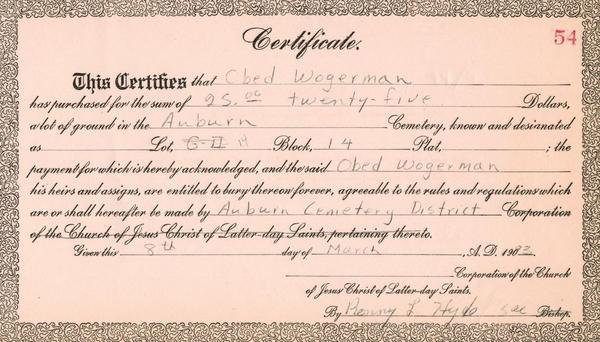 54
Certificate.
This Certifies that Obed Wogerman
has purchased for the sum of 25.00 twenty-five Dollars,
a lot of ground in the Auburn Cemetery, known and desianated
as Lot, G-II H Block, 14 Plat, ; the
payment for which is hereby acknowledged, and the said Obed Wogerman
his heirs and assigns, are entitled to bury thereon forever, agreeable to the rules and regulations which
are or shall hereafter be made by Auburn Cemetery District Corporation
of the Church of Jesus Christ of Latter-day Saints, pertaining thereto.
Given this 8th day of March, A.D. 1983.
Corporation of the Church
of Jesus Christ of Latter-day Saints.
By L Hyde sec Bishop.